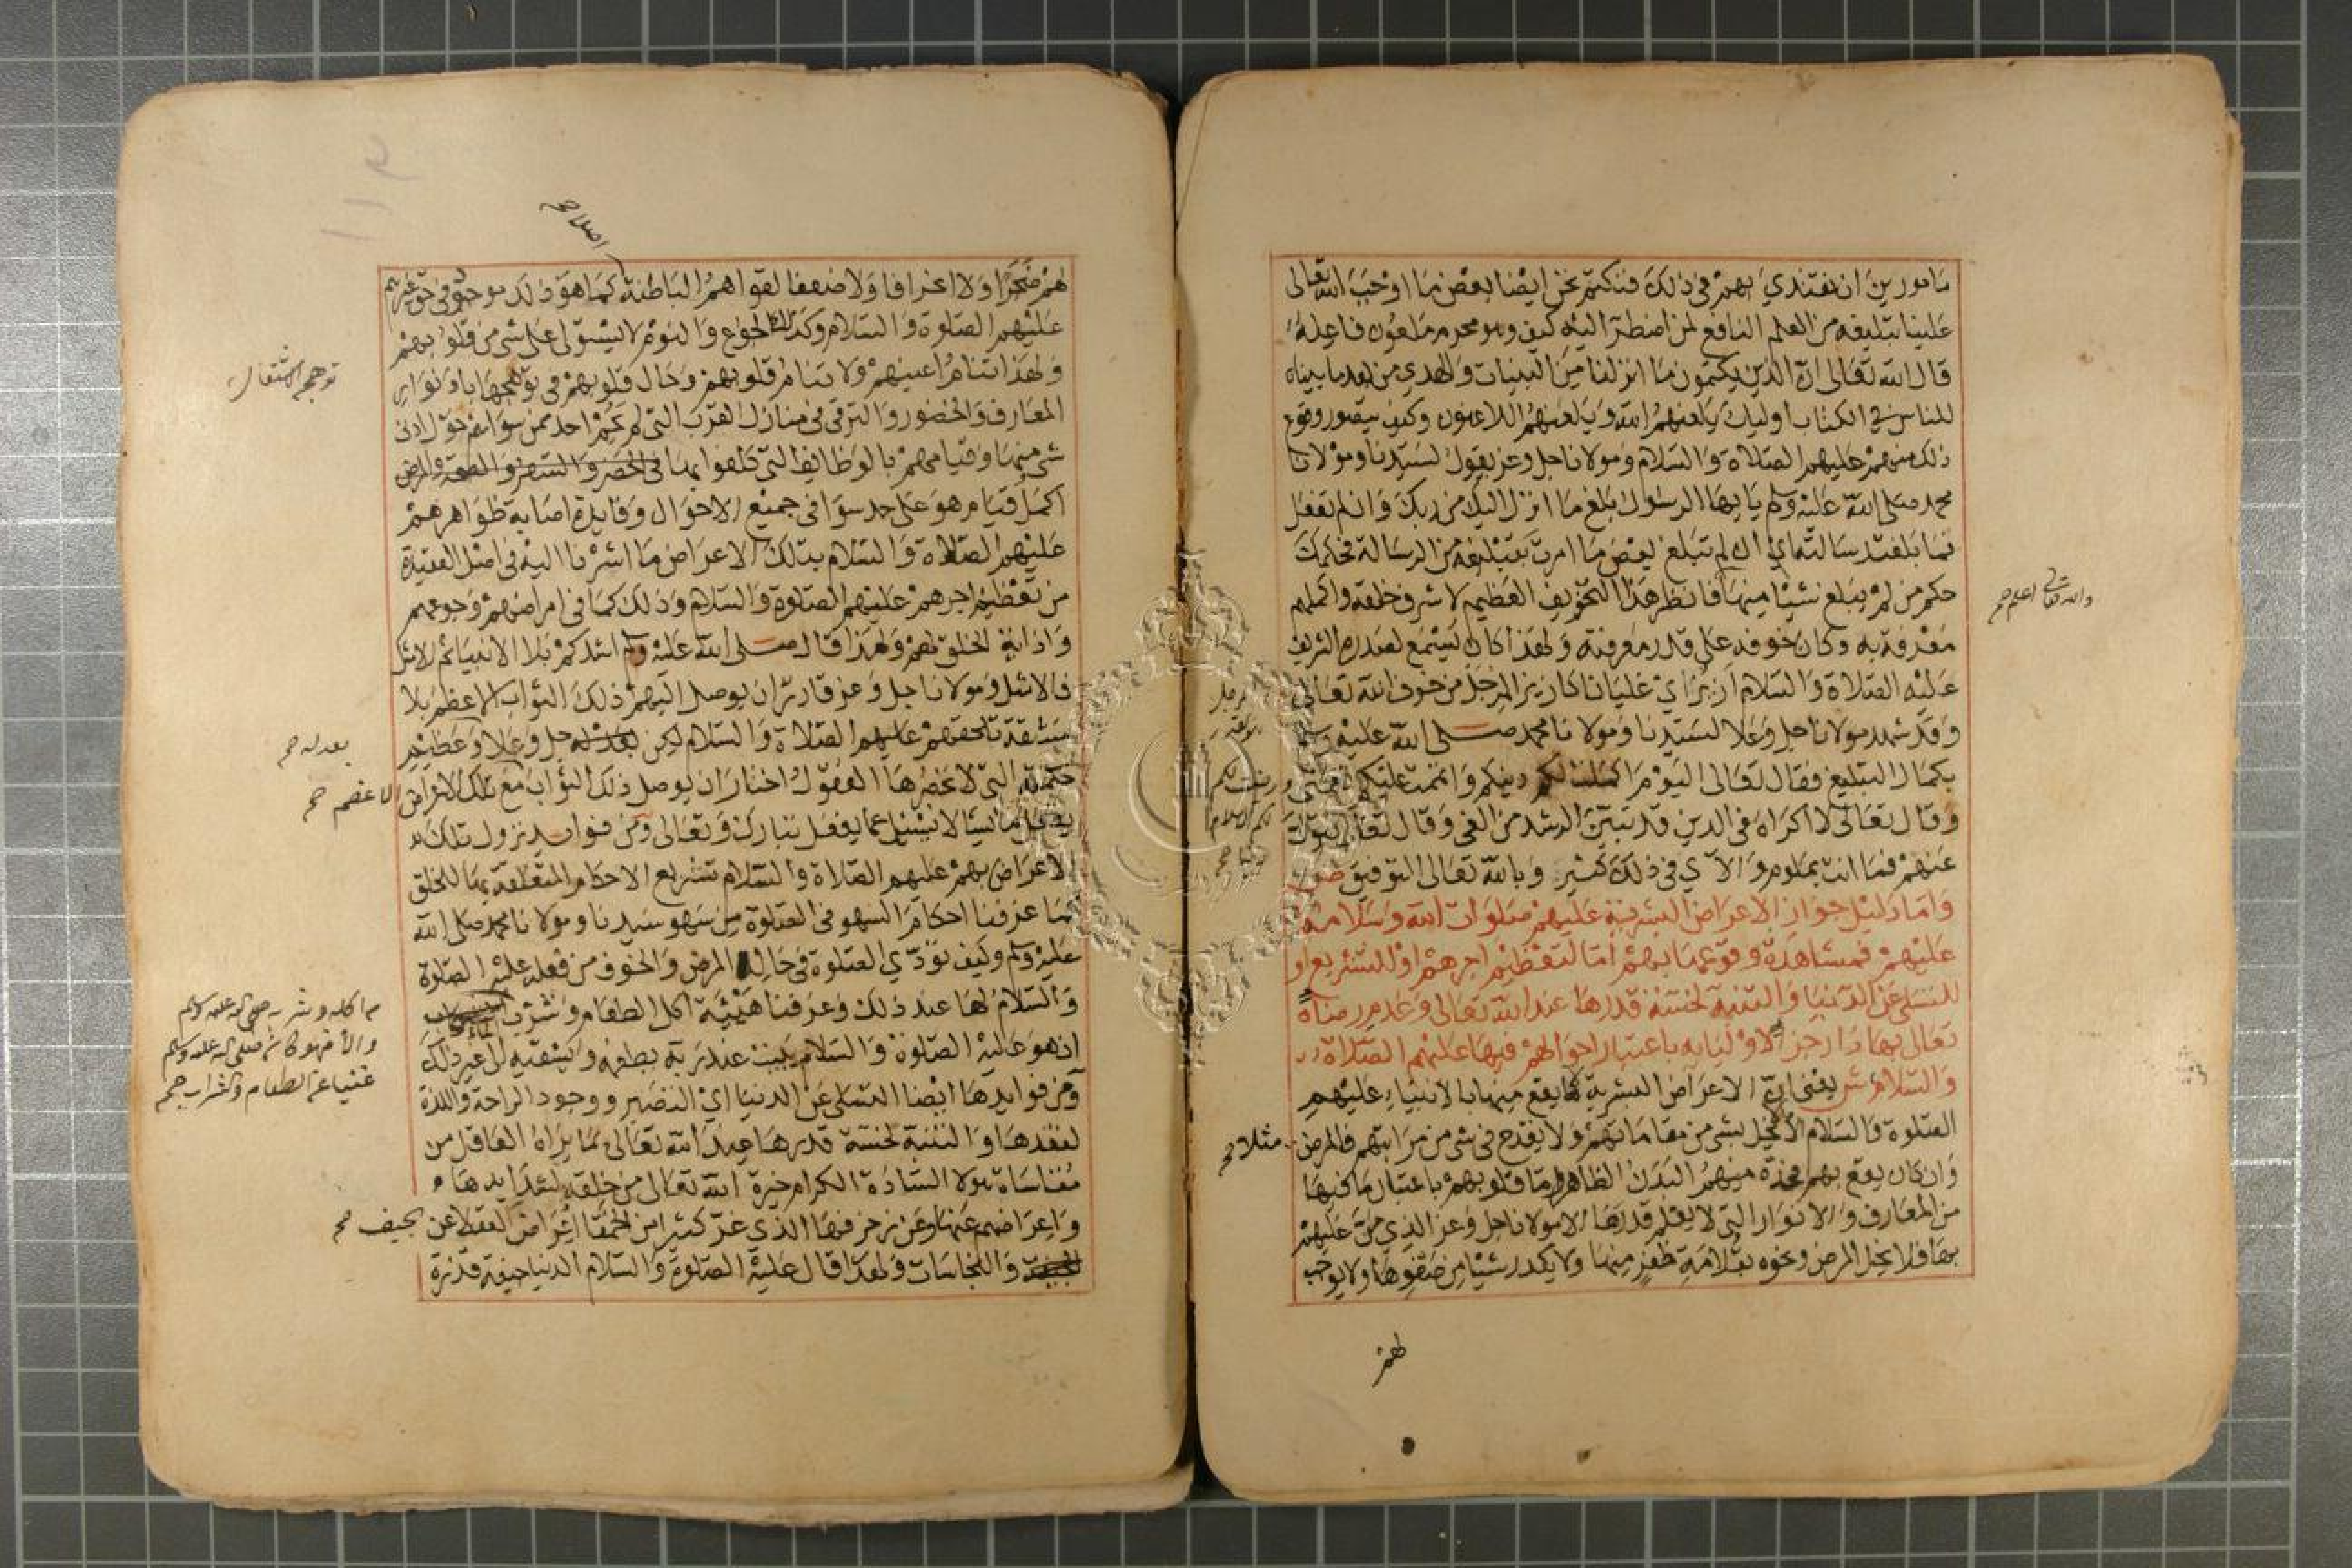 مامورين ان نقتدي بهم فى ذلك فنكتم نحن ايضا بعض ما اوجب الله تعالى
علينا تبليغه من العلم النافع لمن اضطر اليه كيف وهو محرم ملعون فاعله
قال الله تعالى ان الذين يكتمون ما انزلنا من البينات والهدي من بعد ما بيناه
للناس فى الكتاب اوليك يلعنهم الله ويلعنهم اللاعنون وكيف يتصور وقوع
ذلك منهم عليهم الصلاة والسلام ومولانا جل وعز يقول لسيدنا ومولانا
محمد صلى الله عليه وسلم يا يها الرسول بلغ ما انزل اليك من ربك وان لم تفعل
فما بلغت رسالته اي ان لم تبلغ بعض ما امرت بتبليغه من الرسالة فحكمك
حكم من لم يبلغ شيئا منها فانظر هذا التخويف العظيم لاشرف خلقه واكملهم
معرفة به وكان خوفه على قدر معرفته ولهذا كان يسمع لصدره الشريف
عليه الصلاة والسلام ازيزا اي غليانا كازيز المرجل من خوف الله تعالى
وقد شهد مولانا جل وعلا لسيدنا ومولانا محمد صلى الله عليه وسلم
بكمال التبليغ فقال تعالى اليوم اكملت لكم دينكم واتممت عليكم نعمتى
وقال تعالى لا اكراه فى الدين قد تبين الرشد من الغى وقال تعالى فتول
عنهم فما انت بملوم والآي فى ذلك كثير وبالله تعالى التوفيق ص
واما دليل جواز الاعراض البشرية عليهم صلوات الله وسلامه
عليهم فمشاهدة وقوعها بهم اما لتعظيم اجرهم او للتشريع او
للتسلى عن الدنيا والتنبه لخسة قدرها عند الله تعالى وعدم رضاه
تعالى بها دار جزا لاوليايه باعتبار احوالهم فيها عليهم الصلاة
والسلام ش يعنى ان الاعراض البشرية لما يقع منها بالانبياء عليهم
الصلوة والسلام لا يخل بشى من مقاماتهم ولا يقدح فى شى من مراتبهم فالمرض مثلا صح
وان كان يقع بهم فحده منهم البدن الظاهر واما قلوبهم باعتبار ما فيها
من المعارف والانوار التى لا يعلم قدرها الا مولانا جل وعز الذي من عليهم
بها فلا يخل المرض ونحوه بقلامة ظفر منها ولا يكدر شيئا من صفوها ولا يوجب
لهم
والله تعالى اعلم صح
ورضيت لكم الاسلام دينا صح
اصلا صح
لهم ضجرا ولا انحرافا ولا ضعفا لقواهم الباطنة كما هو ذلك موجود فى حق غيرهم
عليهم الصلوة والسلام وكذلك الجوع والنوم لا يستولى على شى من قلوبهم
ولهذا تنام اعينهم ولا تنام قلوبهم وحال قلوبهم فى توهجها بانوار
المعارف والحضور والترقى فى منازل القرب التى لم يحم احد ممن سواهم حول ادنى
شى منها وقيامهم بالوظايف التى كلفوا بها فى الحضر والسفر والصحة والمرض
اكمل قيام هو على حد سوا فى جميع الاحوال وفايدة اصابة ظواهرهم
عليهم الصلاة والسلام بتلك الاعراض ما اشرنا اليه فى اصل العقيدة
من تعظيم اجرهم عليهم الصلوة والسلام وذلك كما فى امراضهم وجوعهم
واذاية الخلق لهم ولهذا قال صلى الله عليه وسلم اشدكم بلا الانبيا ثم الامثل
فالامثل ومولانا جل وعز قادر ان يوصل اليهم ذلك الثواب الاعظم بلا
مشقة تلحقهم عليهم الصلاة والسلام لكن بعدله جل وعلا وعظيم
حكمته التى لا تحصرها العقول اختار ان يوصل ذلك الثواب مع تلك الاعراض
يفعل ما يشا لا يسئل عما يفعل تبارك وتعالى ومن فوايد نزول تلك
الاعراض بهم عليهم الصلاة والسلام تشريع الاحكام المتعلقة بها للخلق
كما عرفنا احكام السهو فى الصلوة من سهو سيدنا ومولانا محمد صلى الله
عليه وسلم وكيف تؤدي الصلوة فى حال المرض والخوف من فعله عليه الصلوة
والسلام لها عند ذلك وعرفنا هيئية اكل الطعام وشرب الماء
اذ هو عليه الصلوة والسلام يبيت عند ربه يطعمه ويسقيه الى غير ذلك
ومن فوايدها ايضا التسلى عن الدنيا اي التصبر ووجود الراحة واللذة
لفقدها والتنبه لخسة قدرها عند الله تعالى بما يراه العاقل من
مقاساة هولا السادة الكرام خيرة الله تعالى من خلقه لشدايدها
واعراضهم عنها وعن زخرفها الذي غر كثيرا من الحمقا اعراض العقلا عن
والنجاسات ولهذا قال عليه الصلوة والسلام الدنيا جيفة قذرة
توهج الاشتعال
بعدله صح
الاعظم صح
من اكله وشربه صلى الله عليه وسلم
والا فهو كان صلى الله عليه وسلم
غنيا عن الطعام والشراب صح
الجيف صح